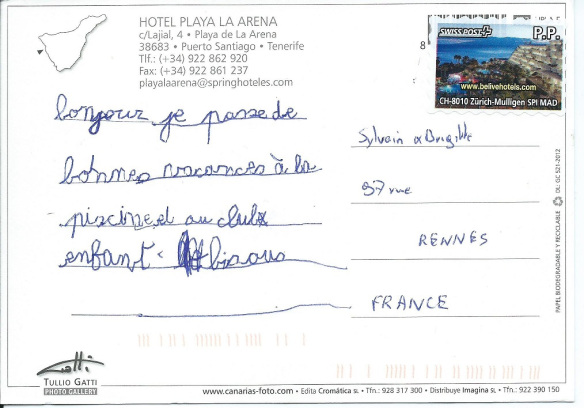 HOTEL PLAYA LA ARENA
c/Lajial, 4 • Playa de La Arena
38683 • Puerto Santiago • Tenerife
Tlf.: (+34) 922 862 920
Fax: (+34) 922 861 237
playalaarena@springhoteles.com
8
SWISS POST P.P.
www.belivehotels.com
CH-8010 Zürich-Mulligen SPI MAD
bonjour je passe de
bonnes vacances à la
piscine et au club
enfant. bisous
Sylvain & Brigitte
97 rue
RENNES
FRANCE
PAPEL BIODEGRADABLE Y RECICLABLE DL: GC 52-2012
Gatti
TULLIO GATTI
PHOTO GALLERY
www.canarias-foto.com • Edita Cromática SL • Tfn.: 928 317 300 • Distribuye Imagina SL • Tfn.: 922 390 150